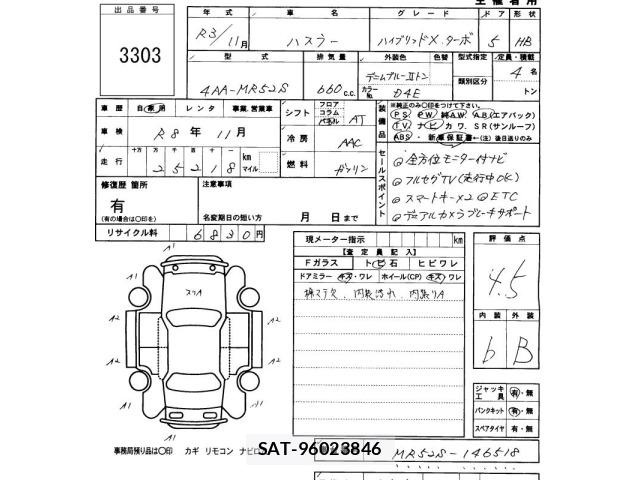 出品番号
3303
年式 車名 グレード ドア 形状
R3/11月 ハスラー ハイブリッドX.ターボ 5 HB
型式 排気量 外装色 色替 型式指定 定員・積載
4AA-MR52S 660c.c. デニムブルーⅡトン カラーNo. D4E 類別区分 4名 トン
車歴 自家用 レンタ 事業,営業車
シフト フロア コラム パネル AT
装備品 ※純正のみ〇印をつけて下さい。
PS PW 純AW AB(エアバック)
TV ナビ カワ SR(サンルーフ)
ABS 新車保証書(注)後日送りのみ
車検 R8年11月
冷房 AAC
走行 十万 万 千 百 十 一
25218 km マイル
燃料 ガソリン
セールスポイント
@全方位モニター付ナビ
@フルセグTV(走行中OK)
@スマートキーX2 @ETC
@デュアルカメラブレーキサポート
修復歴 箇所 注意事項
有
(有の場合は〇印を) 名変期日の短い方 月 日まで
リサイクル料 6830円
現メーター指示 km
【査定員記入】
Fガラス トビ石 ヒビワレ
ドアミラー キズ・ワレ ホイール(CP) キズ・ワレ
内装汚れ
評価点
4.5
内装 外装
b B
A1 A1
スリA
A1 A1
A2 A2
A2 A2
A1 A1
A1
ジャッキ工具 有・無
パンクキット 有・無
スペアタイヤ 有・無
事務局預り品は〇印 カギ リモコン ナビロ
SAT-96023846
MR52S-146518